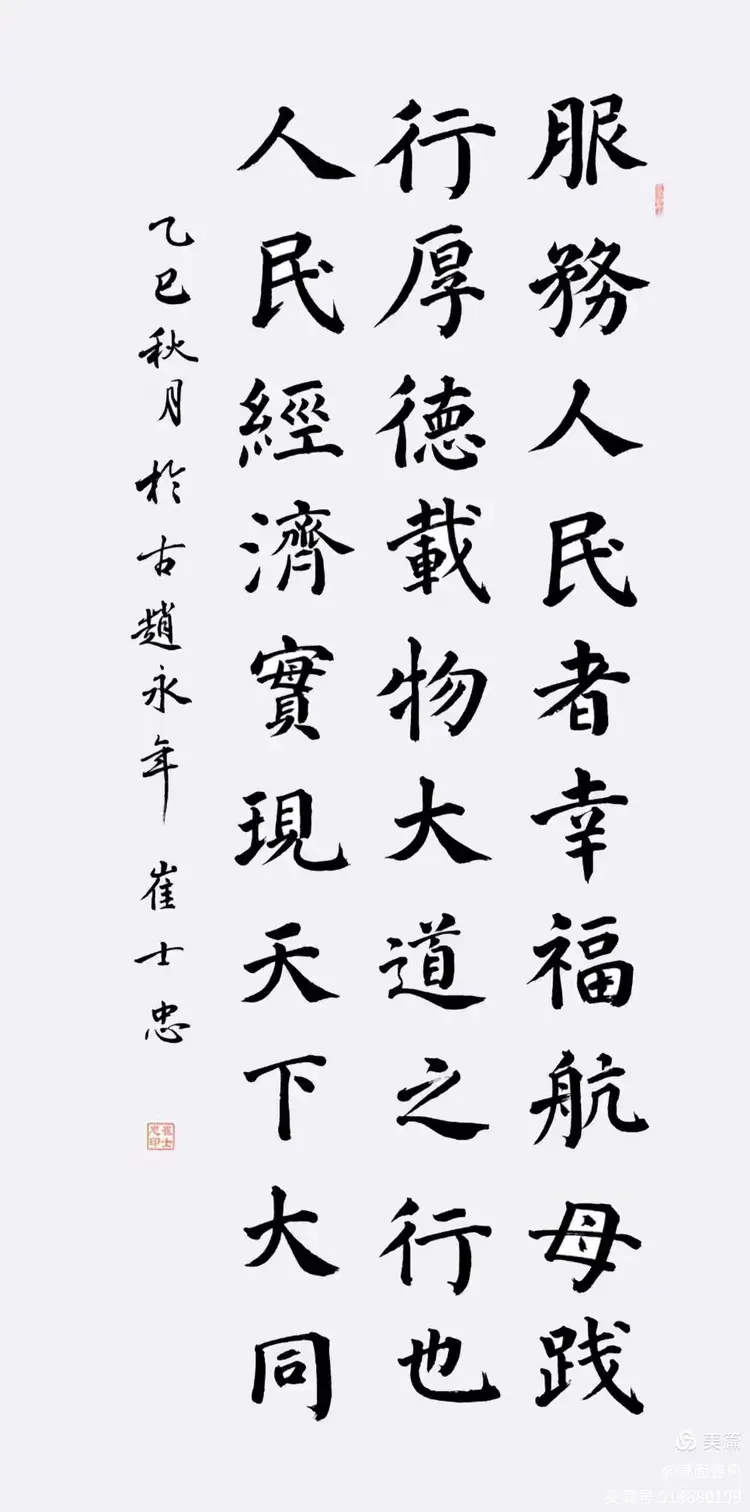 服務人民者幸福航母践
行厚德載物大道之行也
人民經濟實現天下大同
乙巳秋月於古趙永年崔士忠
崔士忠印
美篇